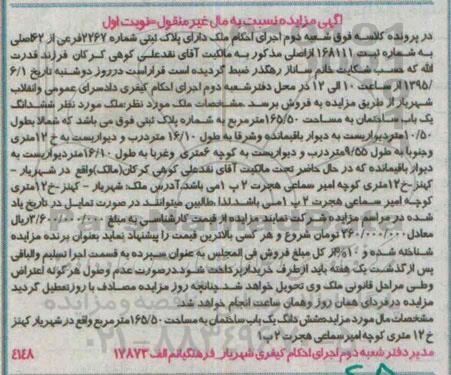 آگهی مزایده نسبت به مال غیر منقول-نوبت اول
در پرونده کلاسه فوق شعبه دوم اجرای احکام ملک دارای پلاک ثبتی شماره ۲۲۶۷فرعی از ۴۲اصلی
به شماره ثبت ۱۶۸۱۱۱ ازاصلی مذکور به مالکیت آقای نقدعلی کوهی کرکان فرزند قدرت
الله که حسب شکایت خانم ساناز رهگذر ضبط گردیده است قراراست درروز دوشنبه تاریخ ۶/۱
/۱۳۹۵ از ساعت ۱۰ الی ۱۲ در محل دفتر شعبه دوم اجرای احکام کیفری دادسرای عمومی وانقلاب
شهریار از طریق مزایده به فروش برسد .مشخصات ملک مورد نظر:ملک مورد نظر ششدانگ
یک باب ساختمان به مساحت ۱۶۵/۵۰مترمربع به شماره پلاک ثبتی فوق می باشد که شمالا بطول
۱۰/۵۰متردیواریست به دیوار باقیمانده وشرقا به طول ۱۶/۱۰ متردرب و دیواریست به خ ۱۲متری
وجنوبا به طول ۹/۵۵متردرب و دیواریست به کوچه ۶متری وغربا به طول ۱۶/۱۰متردیواریست به
دیوار باقیمانده که در حال حاضر تحت مالکیت آقای نقدعلی کوهی کرکان(مالک)واقع در شهریار -
کهنز-خ۱۲متری کوچه امیر سماعی هجرت ۲ پ ۱می باشد.آدرس ملک شهریار - کهنز-خ۱۲متری
کوچه امیر سماعی هجرت ۲ پ ۱می باشد.لذا طالبین میتوانند در صورت تمایل در تاریخ یاد
شده در مراسم مزایده شرکت نمایند مزایده از قیمت کارشناسی به مبلغ ریال
معادل تومان شروع و هر کسی بالاترین قیمت را پیشنهاد نماید بعنوان برنده مزایده
شناخته شده و ۱۰٪از کل مبلغ فروش فی المجلس به عنوان سپرده به قسمت اجرا تسلیم والباقی
پس ازگذشت یک هفته باید ازطرف خریدارپرداخت شود.درصورت عدم وصول هرگونه اعتراض
وطی مراحل قانونی ملک وی تحویل خواهد شد.چنانچه روز مزایده مصادف با روزتعطیل گردید
مزایده در فردای همان روز وهمان ساعت انجام خواهد شد.
مشخصات مال مورد مزایده:شش دانگ یک باب ساختمان به مساحت ۱۶۵/۵۰ متر مربع واقع در شهریار کهنز
خ ۱۲ متری کوچه امیر سماعی هجرت ۲ پ ۱
مدیر دفتر شعبه دوم اجرای احکام کیفری شهریار_فرهنگیانم الف ۱۲۸۷۳ ۴۱۴۸